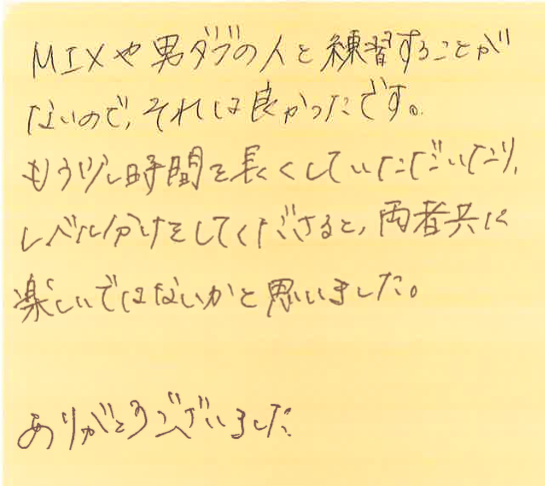 MIXや男ダブの人と練習することが
ないので、それは良かったです。
もう少し時間を長くしていただいたり、
レベル分けをしてくださると、両者共に
楽しいではないかと思いました。
ありがとうございました